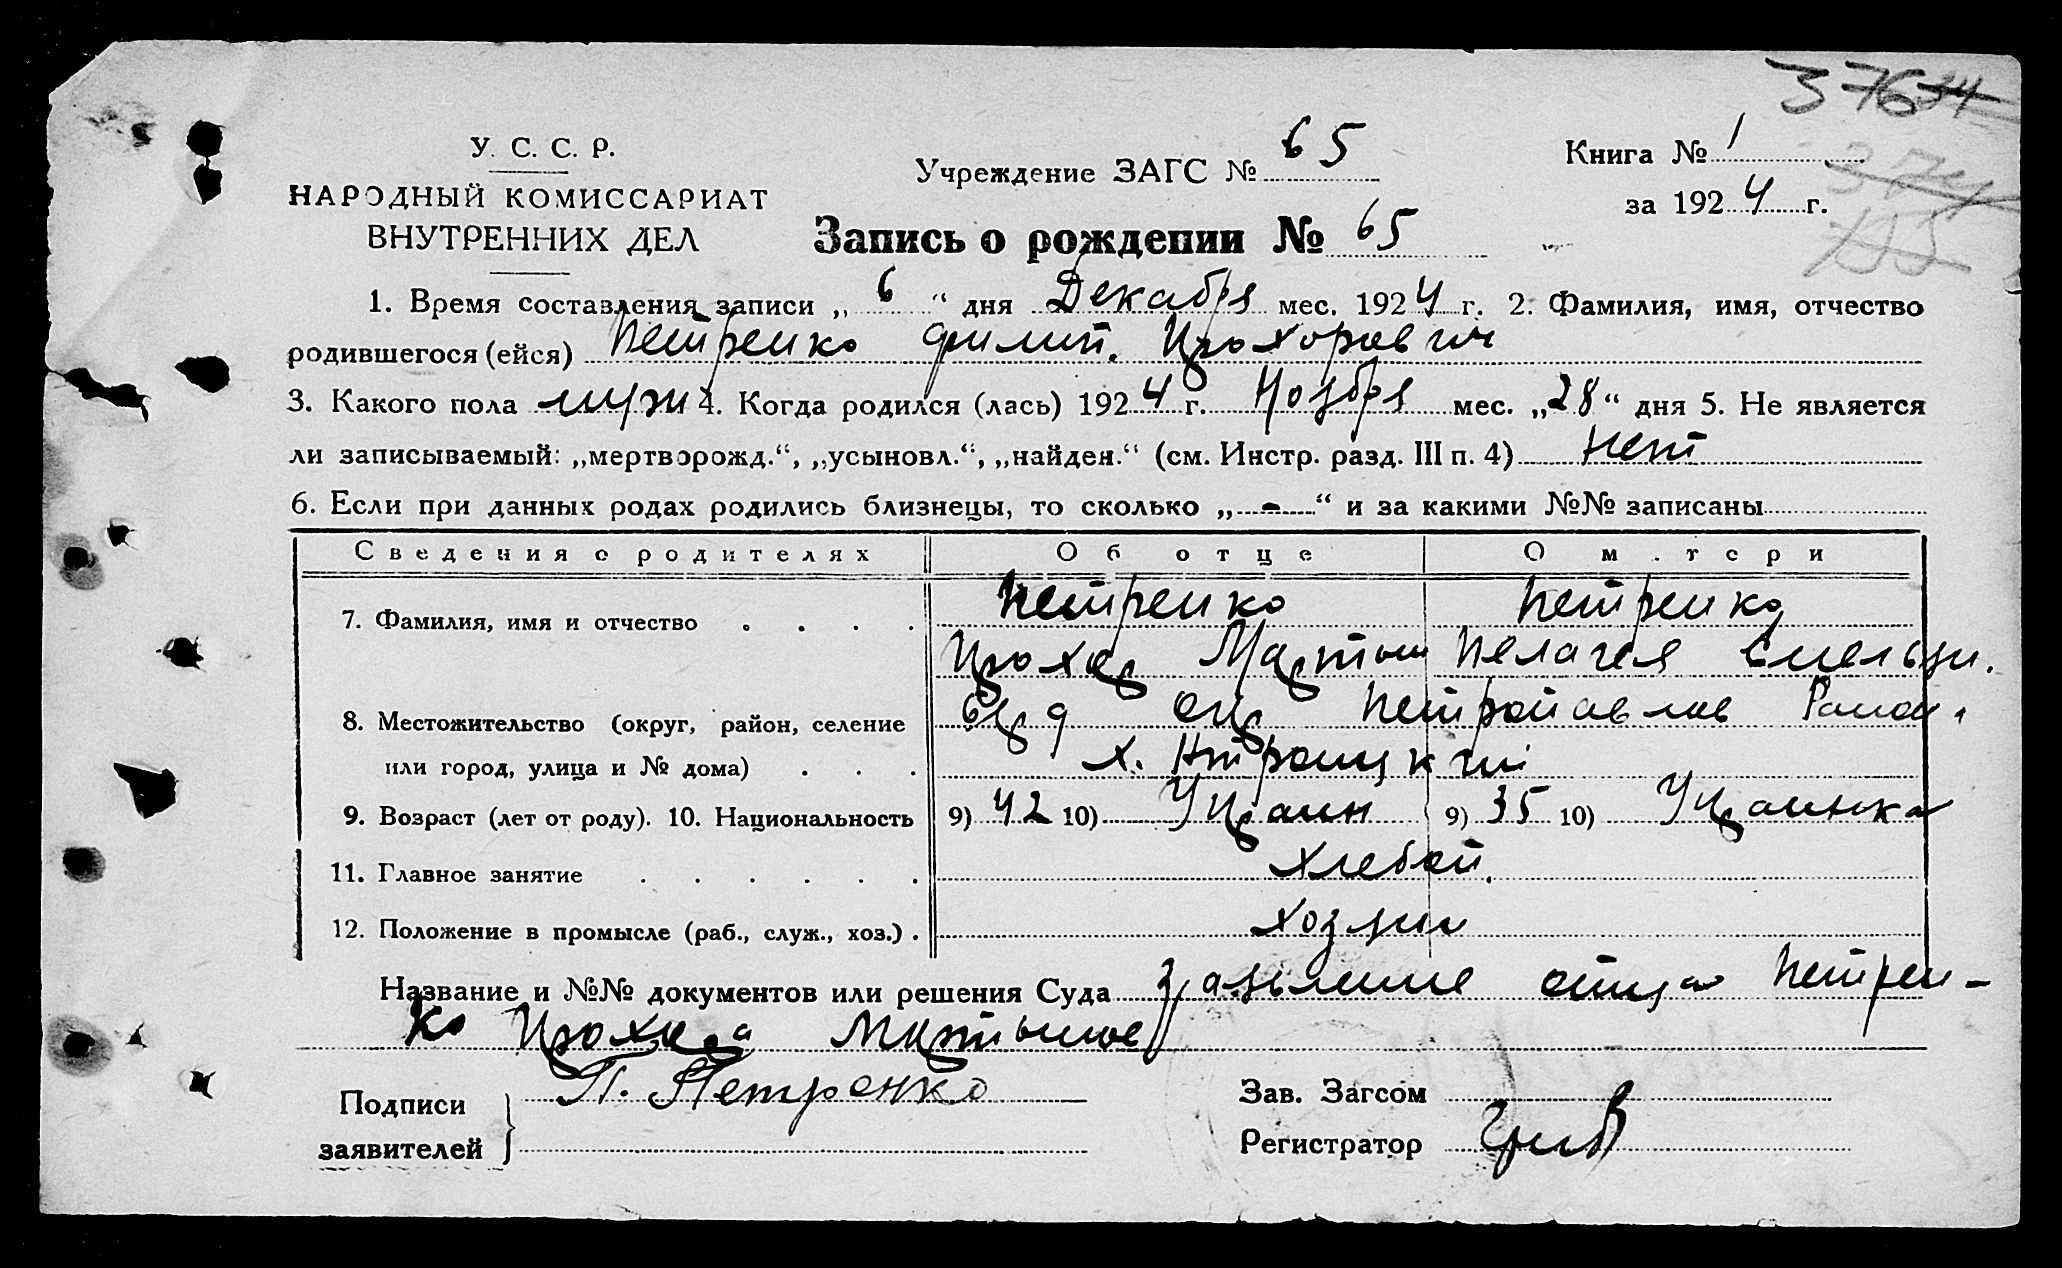 37634
У. С. С. Р.
НАРОДНЫЙ КОМИССАРИАТ
ВНУТРЕННИХ ДЕЛ
Учреждение ЗАГС № 65
Книга № 1
за 1924 г.
Запись о рождении № 65
1. Время составления записи „ 6 “ дня Декабря мес. 1924 г. 2. Фамилия, имя, отчество
родившегося (ейся) Петренко Филип. Прохорович
3. Какого пола муж 4. Когда родился (лась) 1924 г. Ноября мес. „28“ дня 5. Не является
ли записываемый: „мертворожд.“, „усыновл.“, „найден.“ (см. Инстр. разд. III п. 4) нет
6. Если при данных родах родились близнецы, то сколько „ - “ и за какими №№ записаны
Сведения о родителях Об отце О матери
7. Фамилия, имя и отчество Петренко Петренко
Прохор Мартын Пелагея Емельян.
8. Местожительство (округ, район, селение Петропавлов Район.
или город, улица и № дома) х.
9. Возраст (лет от роду). 10. Национальность 9) 42 10) Украин 9) 35 10) Украинка
11. Главное занятие Хлебоп.
12. Положение в промысле (раб., служ., хоз.) Хозяин
Название и №№ документов или решения Суда отца Петрен-
ко Прохора
Подписи
заявителей
П. Петренко
Зав. Загсом
Регистратор